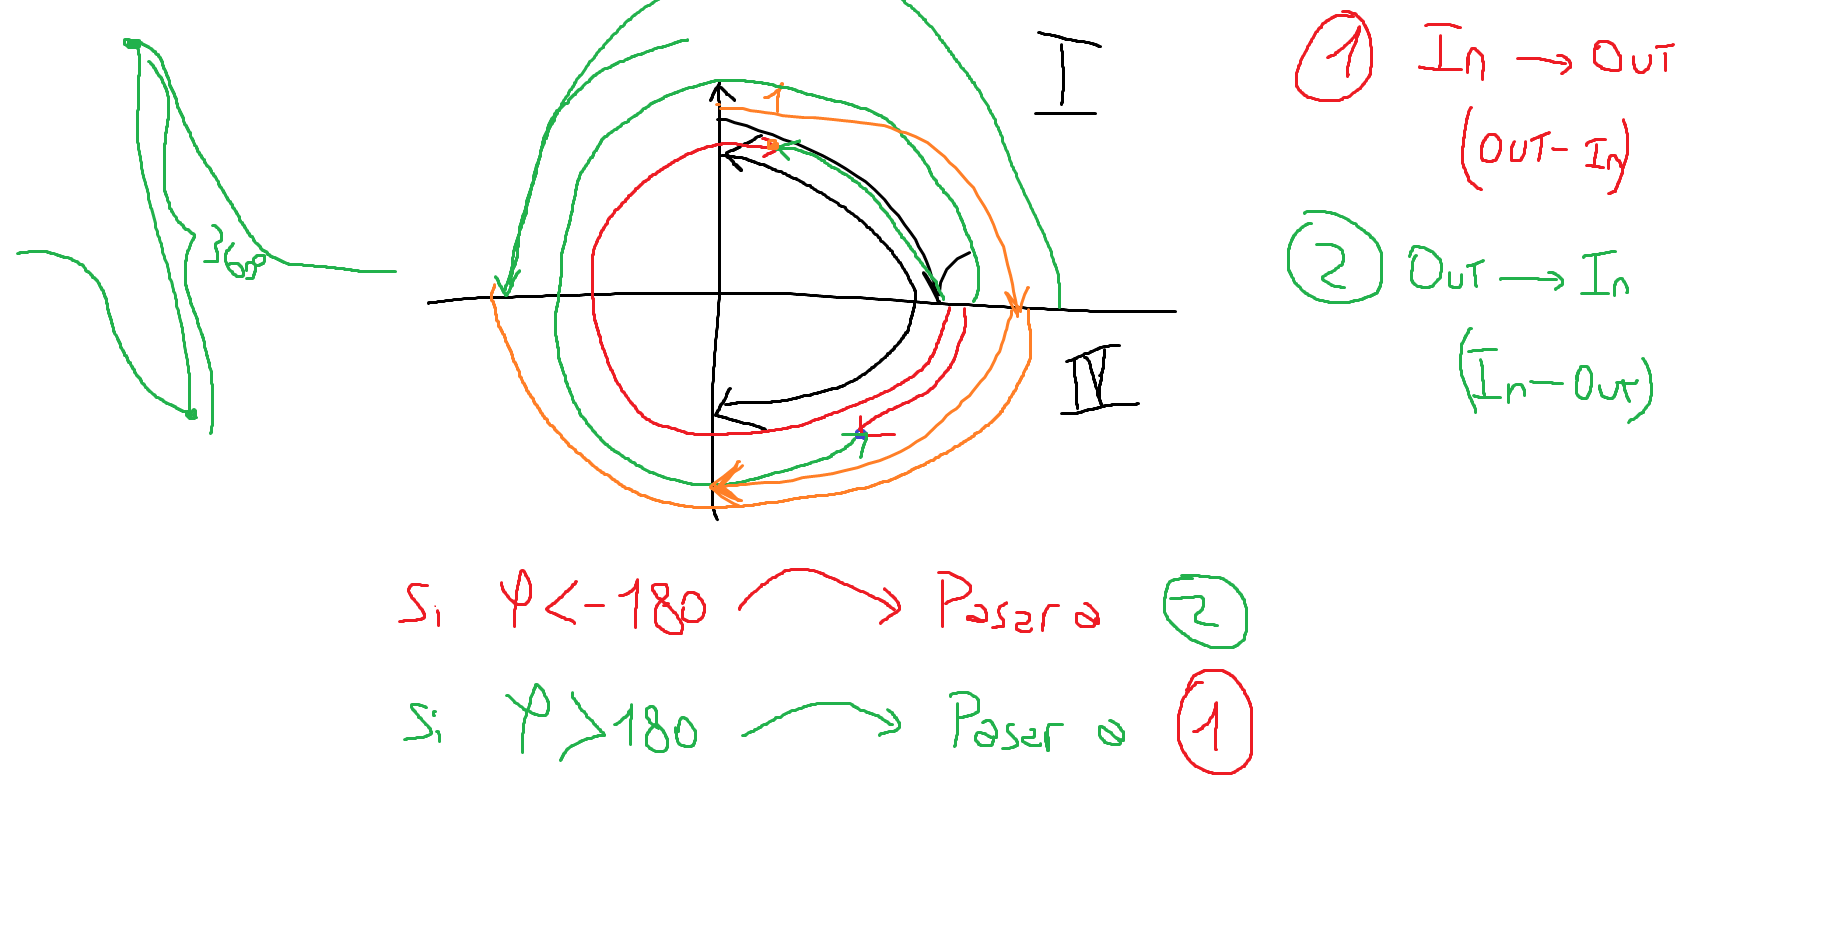 I
1
① In → Out
(Out - In)
360
② Out → In
(In - Out)
IV
Si φ < -180 → Pasar a ②
Si φ > 180 → Pasar a ①